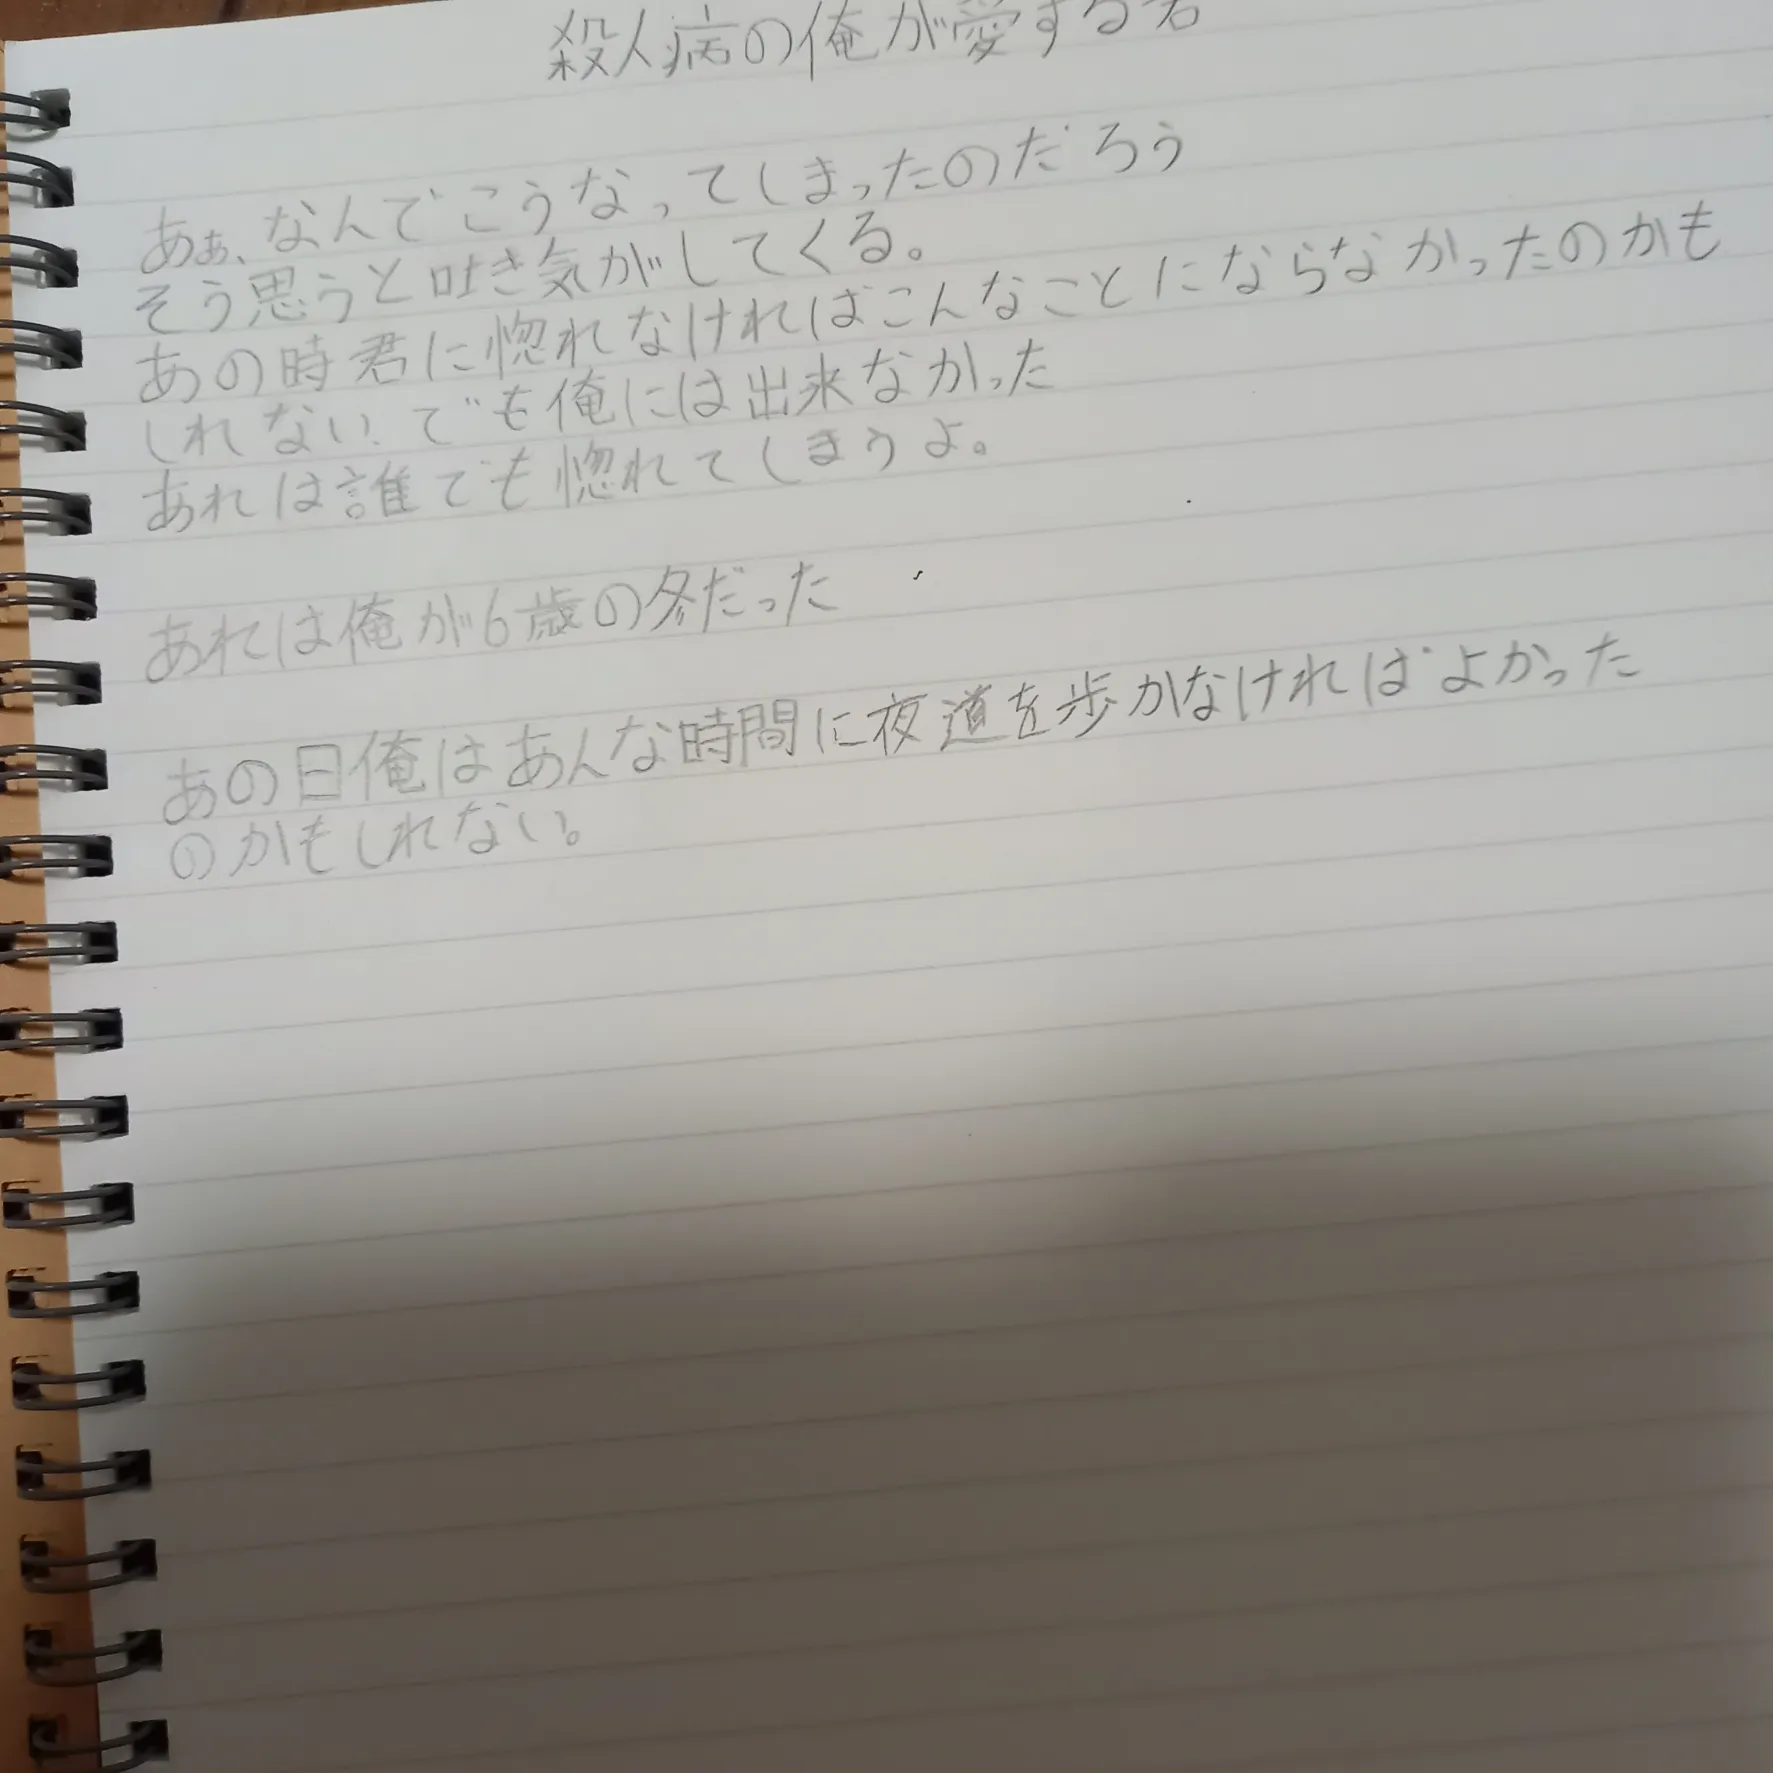 殺人病の俺が愛する君
あぁ、なんでこうなってしまったのだろう
そう思うと吐き気がしてくる。
あの時君に惚れなければこんなことにならなかったのかも
しれない、でも俺には出来なかった
あれは誰でも惚れてしまうよ。
あれは俺が6歳の冬だった
あの日俺はあんな時間に夜道を歩かなければよかった
のかもしれない。